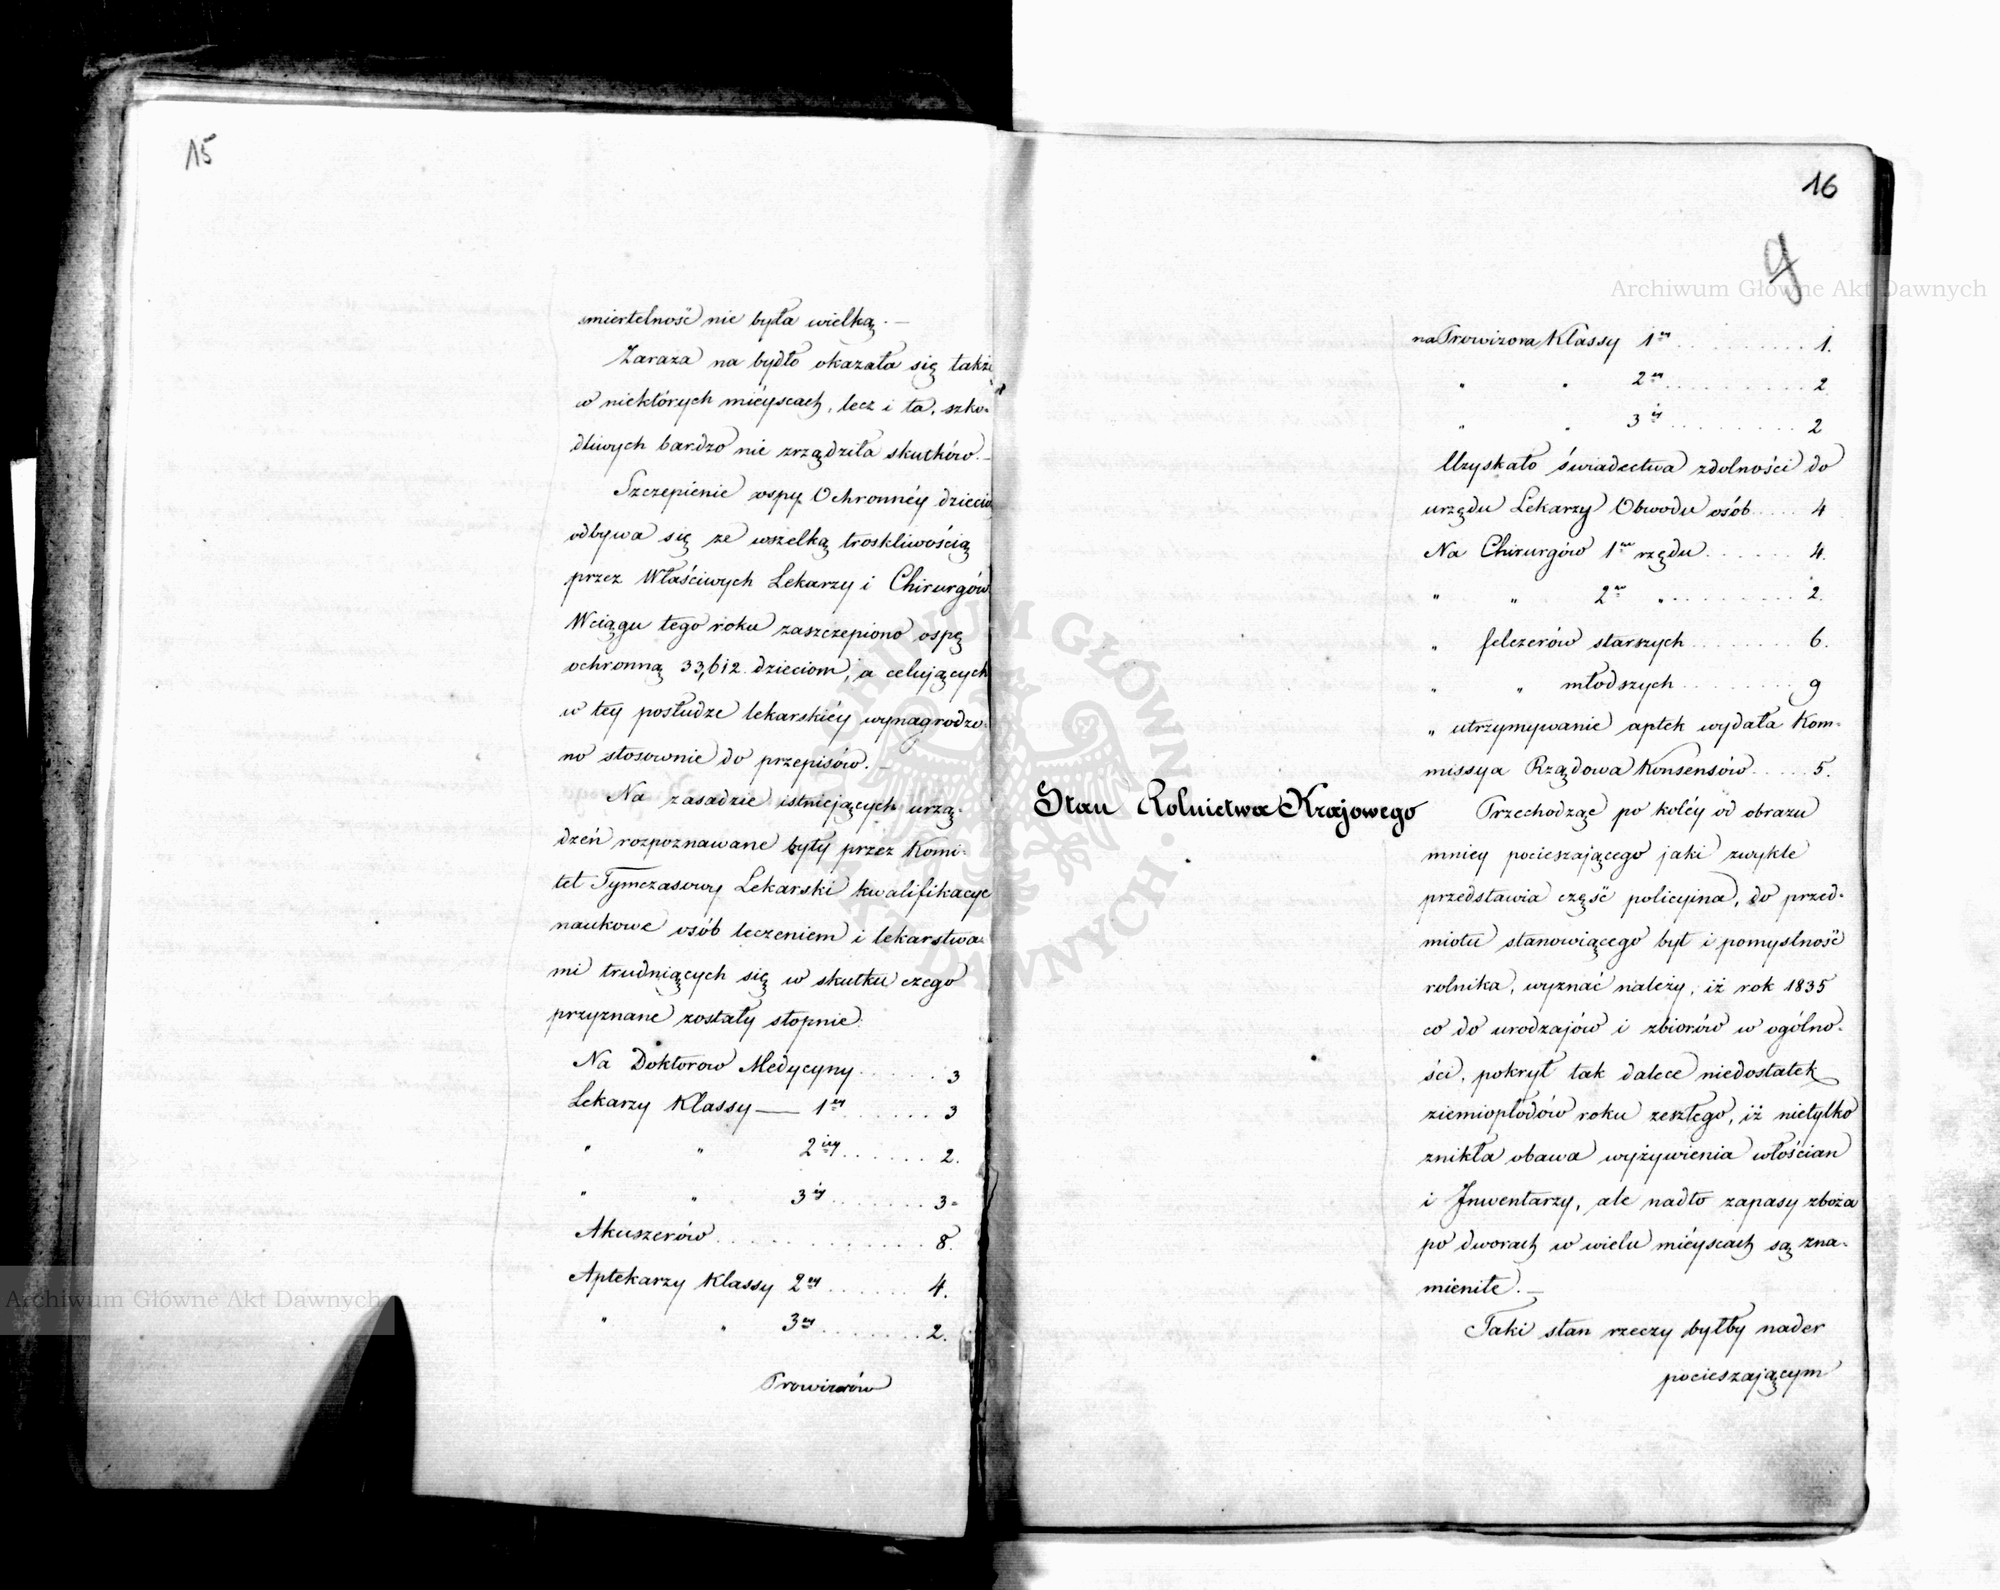 15
smiertelność nie była wielką. —
Zaraza na bydło okazała się także
w niektórych mieyscach, lecz i ta, szko-
dliwych bardzo nie zrządziła skutków. —
Szczepienie ospy Ochronnéy dzieciom
odbywa się ze wszelką troskliwością
przez Właściwych Lekarzy i Chirurgów
W ciągu tego roku zaszczepiono ospę
ochronną 33,612 dzieciom, a celujących
w tey posłudze lekarskiéy wynagrodzo-
no stosownie do przepisów. —
Na zasadzie istniejących urzą-
dzeń rozpoznawane były przez Komi-
tet Tymczasowy Lekarski kwalifikacye
naukowe osób leczeniem i lekarstwa-
mi trudniących się w skutku czego
przyznane zostały stopnie:
Na Doktorow Medycyny . . . . . . 3
Lekarzy Klassy — 1ey . . . . . . 3
" " 2iey . . . . . . 2.
" " 3iey . . . . . . 3-
Akuszerów . . . . . . . . . . . . 8.
Aptekarzy Klassy 2ey . . . . . . 4.
" " 3ey . . . . . . . 2.
Prowizorów
16
9
na Prowizora Klassy 1ey . . . . . . . . . 1.
" " 2ey . . . . . . . . . 2
" " 3iey . . . . . . . . 2
Uzyskało świadectwa zdolności do
urzędu Lekarzy Obwodu osób . . . . 4
Na Chirurgów 1go rzędu . . . . . . 4.
" " 2go " . . . . . . . . 2.
" felczerów starszych . . . . . . . 6.
" " młodszych . . . . . . . . 9
" utrzymywanie aptek wydała Kom-
missya Rządowa Konsensów . . . . 5.
Stan Rolnictwa Krajowego
Przechodząc po koléy od obrazu
mniey pocieszającego jaki zwykle
przedstawia część policyina, do przed-
miotu stanowiącego byt i pomyslność
rolnika, wyznać należy, iż rok 1835
co do urodzajów i zbiorów w ogólno-
ści, pokrył tak dalece niedostatek
ziemiopłodów roku zeszłego, iż nietylko
znikła obawa wyżywienia włościan
i Inwentarzy, ale nadto zapasy zboża
po dworach w wielu mieyscach są zna-
mienite. —
Taki stan rzeczy byłby nader
pocieszającym
Archiwum Główne Akt Dawnych
Archiwum Główne Akt Dawnych
ARCHIWUM GŁÓWNE AKT DAWNYCH